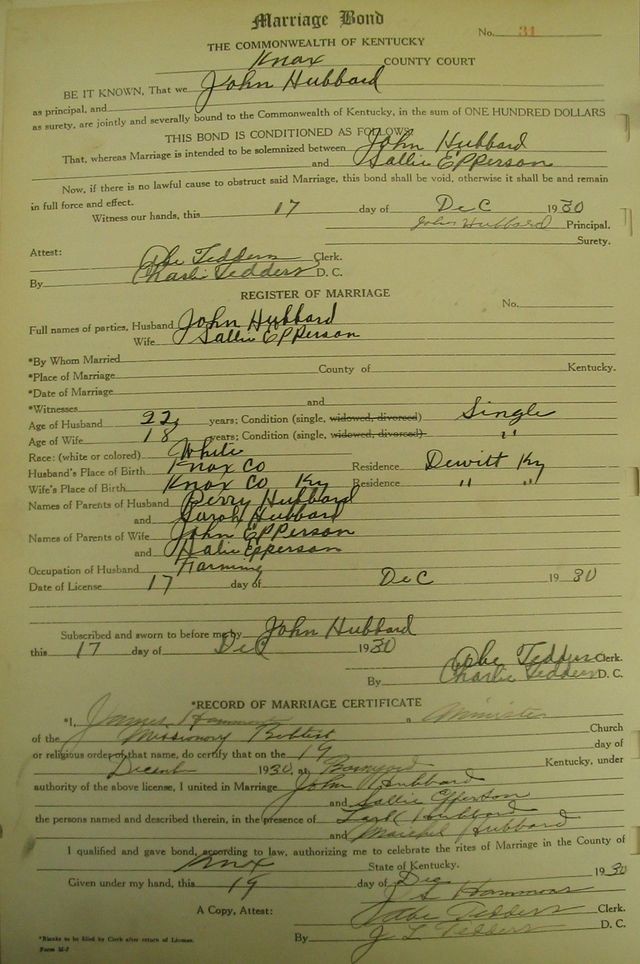 Marriage Bond
No. 31
THE COMMONWEALTH OF KENTUCKY
Knox COUNTY COURT
BE IT KNOWN, That we John Hubbard
as principal, and
as surety, are jointly and severally bound to the Commonwealth of Kentucky, in the sum of ONE HUNDRED DOLLARS
THIS BOND IS CONDITIONED AS FOLLOWS
That, whereas Marriage is intended to be solemnized between John Hubbard
and Sallie Epperson
Now, if there is no lawful cause to obstruct said Marriage, this bond shall be void, otherwise it shall be and remain
in full force and effect.
Witness our hands, this 17 day of Dec 1930
John Hubbard Principal.
Surety.
Attest:
Abe Tedders Clerk.
By Charlie Tedders D. C.
REGISTER OF MARRIAGE
No.
Full names of parties, Husband John Hubbard
Wife Sallie Epperson
*By Whom Married
*Place of Marriage County of Kentucky.
*Date of Marriage
*Witnesses and
Age of Husband 22 years; Condition (single, widowed, divorced) Single
Age of Wife 18 years; Condition (single, widowed, divorced) "
Race: (white or colored) White
Husband's Place of Birth Knox Co Residence Dewitt Ky
Wife's Place of Birth Knox Co Ky Residence " "
Names of Parents of Husband Perry Hubbard
and Sarah Hubbard
Names of Parents of Wife John Epperson
and Halie Epperson
Occupation of Husband Farming
Date of License 17 day of Dec 1930
Subscribed and sworn to before me by John Hubbard
this 17 day of Dec 1930
Abe Tedders Clerk.
By Charlie Tedders D. C.
*RECORD OF MARRIAGE CERTIFICATE
*I, James Hammons a Minister
of the Missionary Babtest Church
or religious order of that name, do certify that on the 19 day of
1930, at Kentucky, under
authority of the above license, I united in Marriage John Hubbard
and Sallie Epperson
the persons named and described therein, in the presence of Hubbard
and Hubbard
I qualified and gave bond, according to law, authorizing me to celebrate the rites of Marriage in the County of
Knox State of Kentucky.
Given under my hand, this 19 day of Dec 1930
J S Hammons
A Copy, Attest: Abe Tedders Clerk.
By J L Tedders D. C.
*Blanks to be filed by Clerk after return of License.
Form M-2